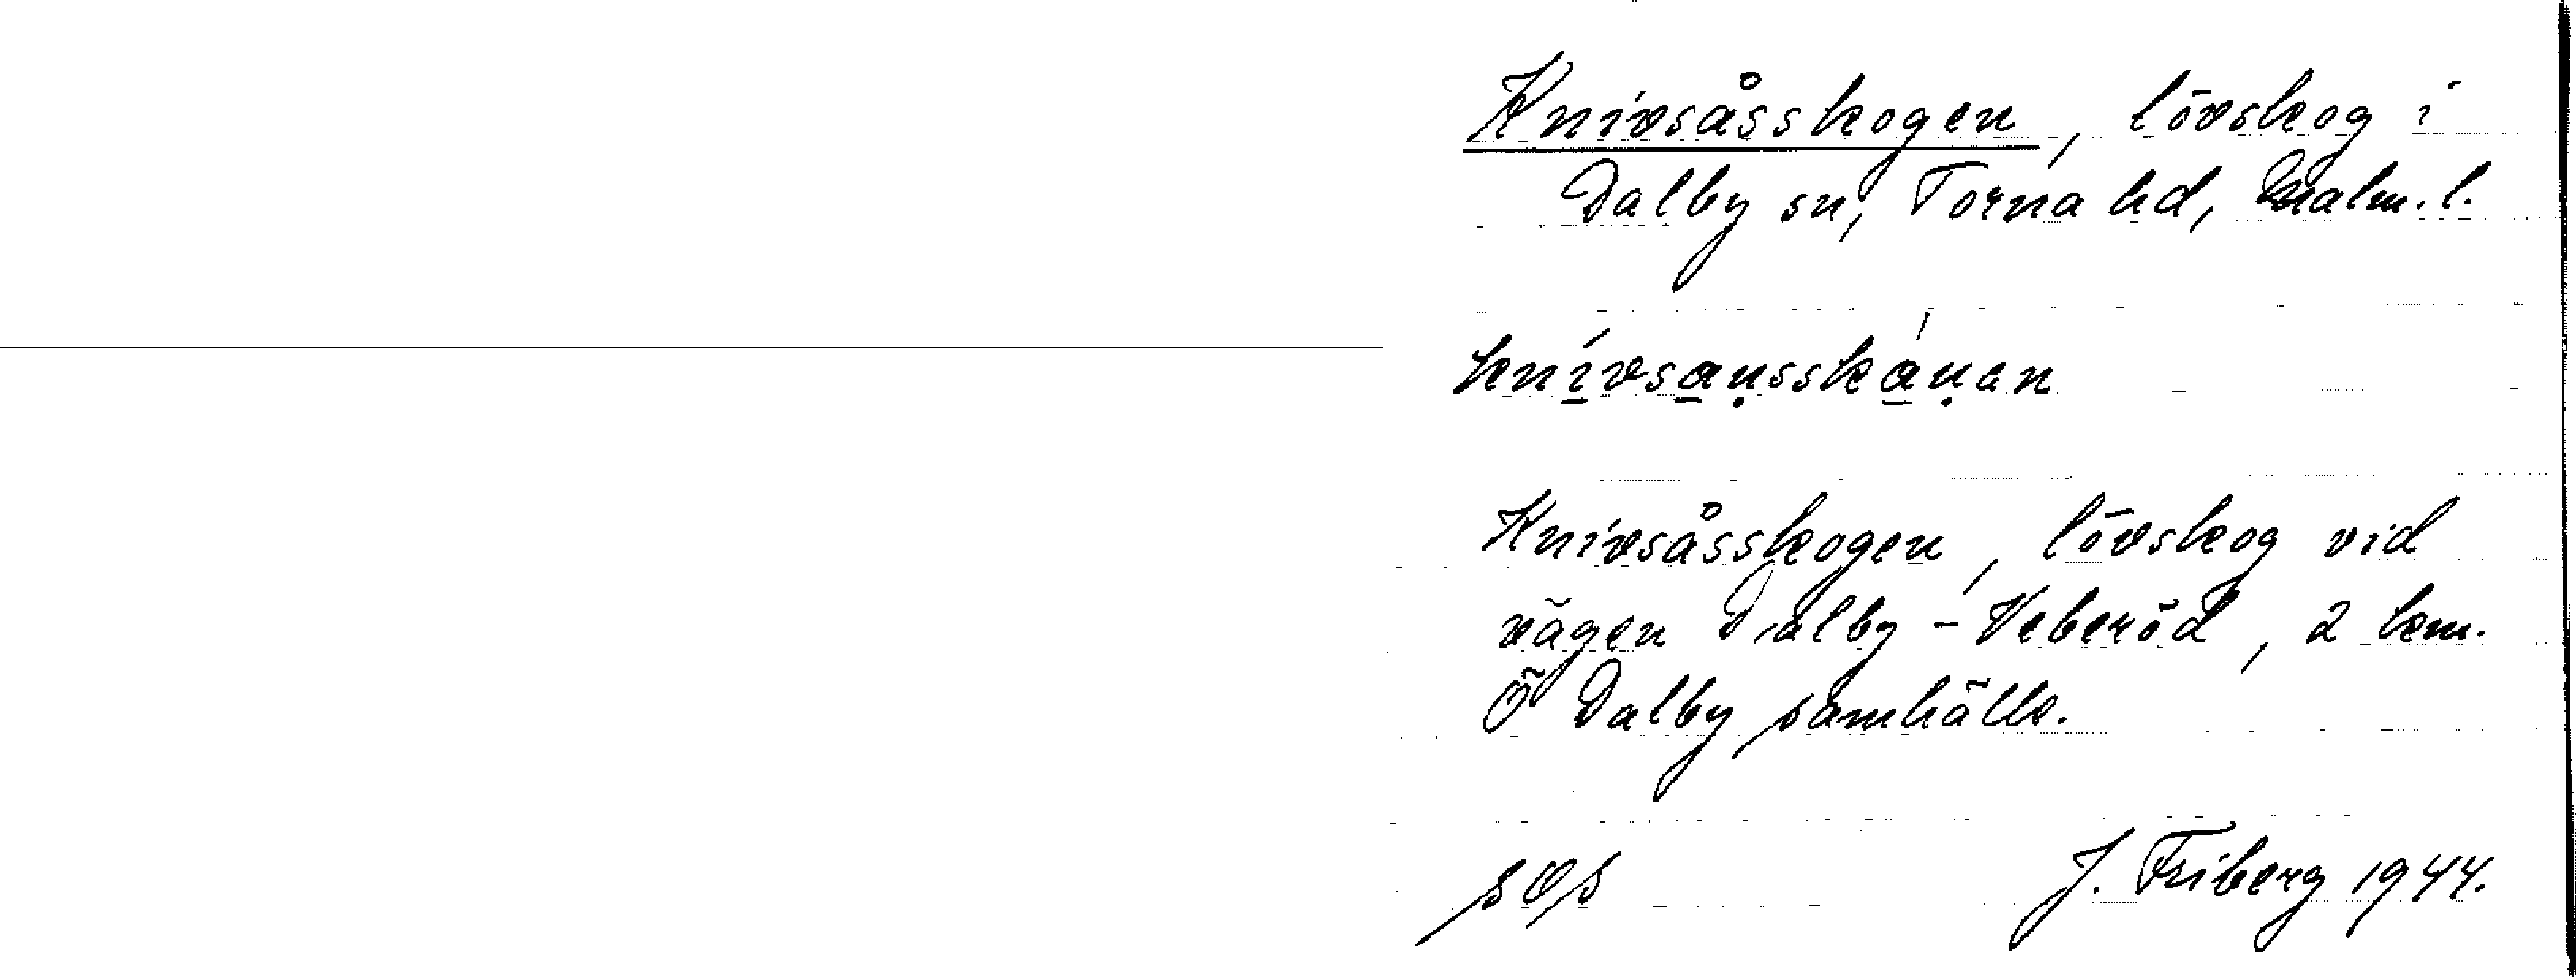 Knivsåsskogen, lövskog i
Dalby sn, Torna hd, Malm. l.
knívsau̥sskáu̥an
Knivsåsskogen, lövskog vid
vägen Dalby - Veberöd, 2 km.
Ö Dalby samhälle.
sOs J. Friberg 1944.